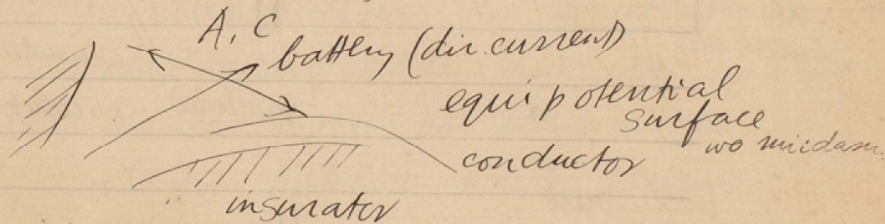 A, C
battery (dir. current)
equi potential
surface
wo midasu
conductor
insurator